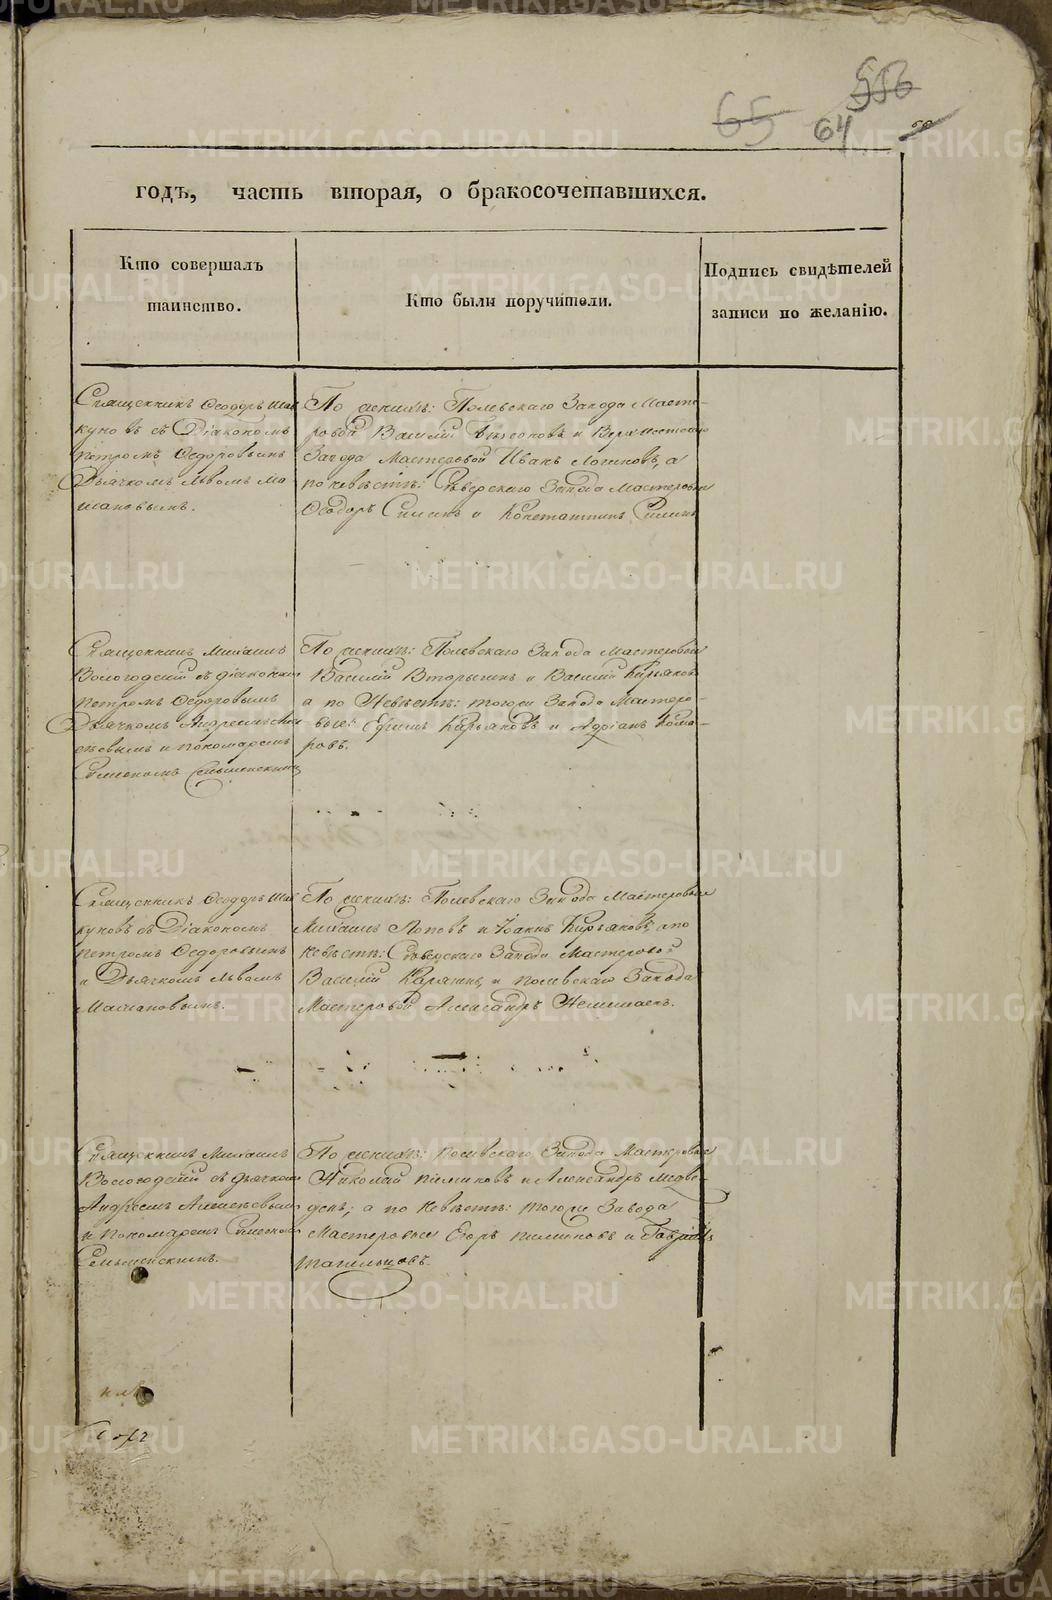 556
65 64
годъ, часть вторая, о бракосочетавшихся.
Кто совершалъ
таинство.
Кто были поручители.
Подпись свидѣтелей
записи по желанію.
Священникъ Ѳеодоръ
куновъ съ Діакономъ
Петромъ Ѳедоровымъ
Дьячкомъ Львомъ Ма
шановымъ.
По женихѣ: Полевскаго Завода Масте-
ровой Василій и
Завода Мастеровой Иванъ Логиновъ, а
по невѣстѣ: Сѣверскаго Завода Мастеровые
Ѳеодоръ Силинъ и Константинъ Силинъ
Священникъ Михаилъ
Вологодскій съ діакономъ
Петромъ Ѳедоровымъ
Дьячкомъ Андреемъ Але
ѣевымъ и пономаремъ
Симеономъ
По женихѣ: Полевскаго Завода Мастеровые
Василій Вторыгинъ и Василій Кирьяковъ
а по Невѣстѣ: тогоже Завода Мастеро-
вые: Ефимъ Кирьяковъ и Адріанъ Кома-
ровъ.
Священникъ Ѳеодоръ
куновъ съ Діакономъ
Петромъ Ѳедоровымъ
и Дьячкомъ Львомъ
Машановымъ.
По женихѣ: Полевскаго Завода Мастеровые
Михаилъ Поповъ и Іоаннъ Кирьяковъ, а по
невѣстѣ: Сѣверскаго Завода Мастеровой
Василій и Полевскаго Завода
Мастеровой Александръ
Священникъ Михаилъ
Вологодскій съ дьячкомъ
Андреемъ Алексѣевымъ
и Пономаремъ Симеоном
По женихѣ: Полевскаго Завода Мастеровые
Николай Пилиповъ и Александръ Медве-
девъ; а по Невѣстѣ: тогоже Завода
Мастеровые Егоръ Пилиповъ и Гавріилъ
METRIKI.GASO-URAL.RU